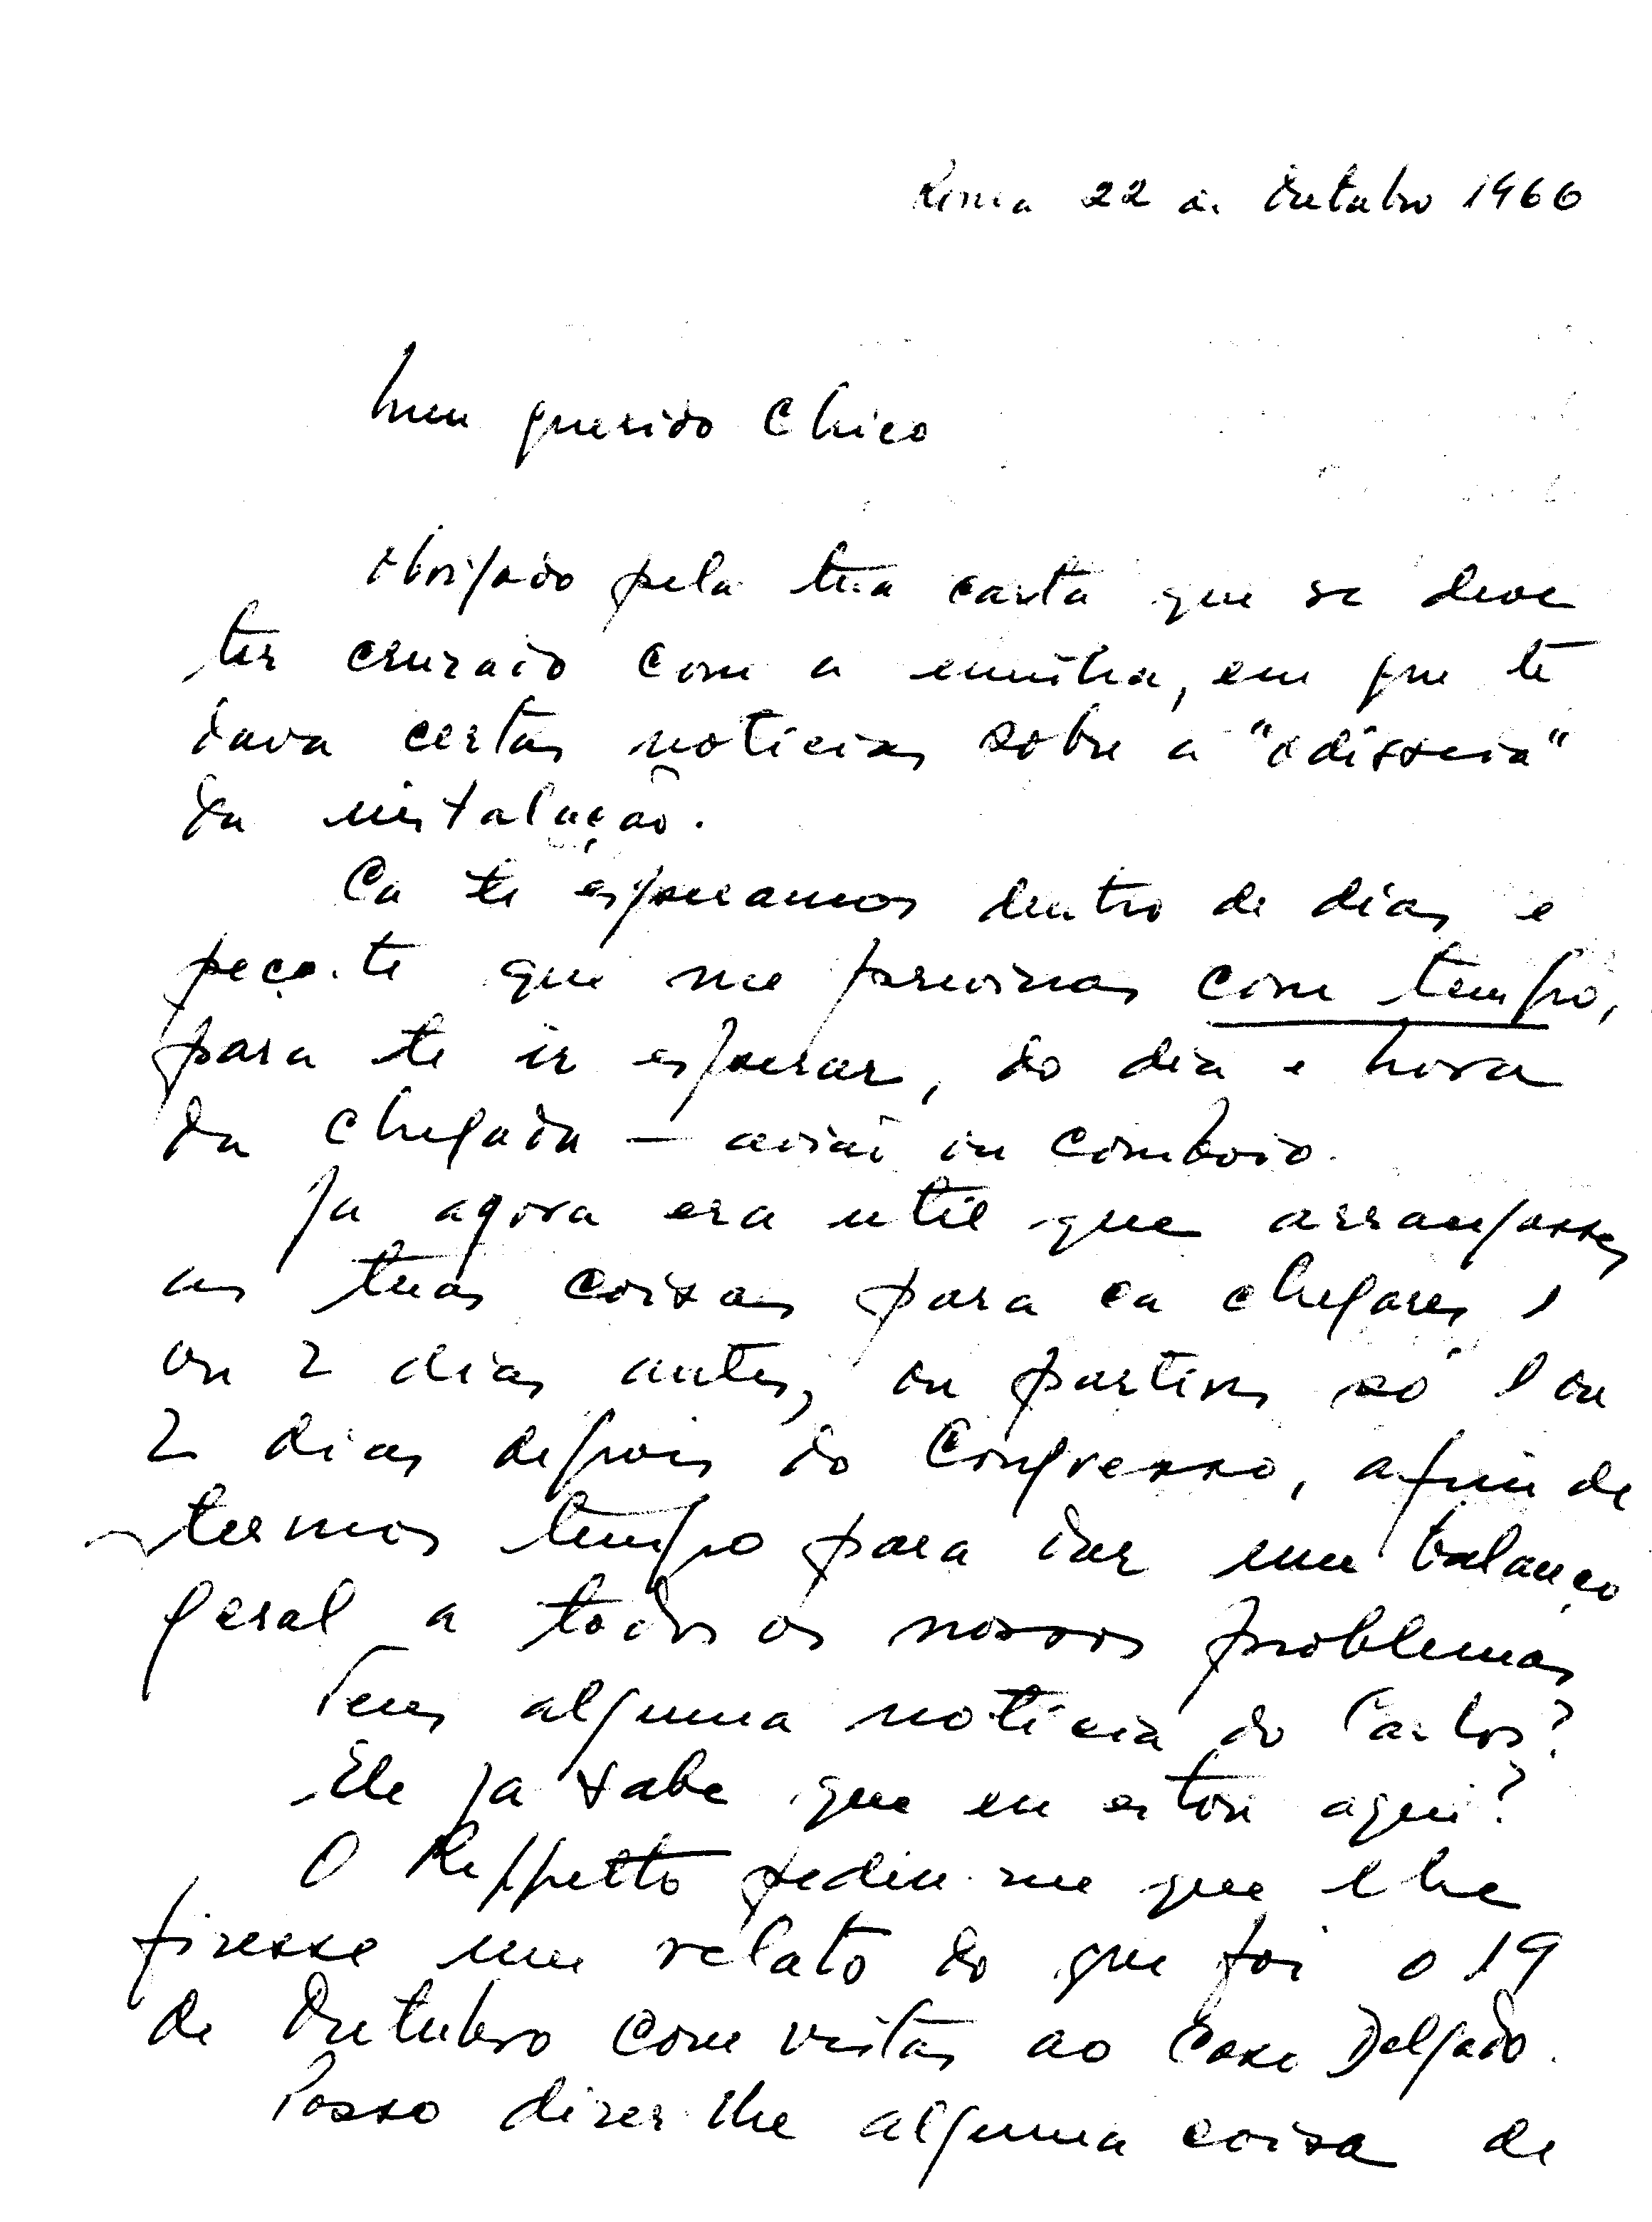 Roma 22 de Outubro 1966
Meu querido Chico
Obrigado pela tua carta que se deve
ter cruzado com a minha, em que te
dava certas noticias sobre a "odisseia"
da instalação.
Ca te esperamos dentro de dias e
peço-te que me previnas com tempo,
para te ir esperar, do dia e hora
da chegada – avião ou comboio.
Ja agora era util que arranjasses
as tuas coisas para ca chegares 1
ou 2 dias antes, ou partires só 1 ou
2 dias depois do Congresso, afim de
termos tempo para dar um balanço
geral a todos os nossos problemas
Tens alguma noticia do Carlos?
Ele ja sabe que eu estou aqui?
O Reppetto pediu-me que lhe
fizesse um relato do que foi o 19
de Outubro com vistas ao Caso Delgado.
Posso dizer-lhe alguma coisa de